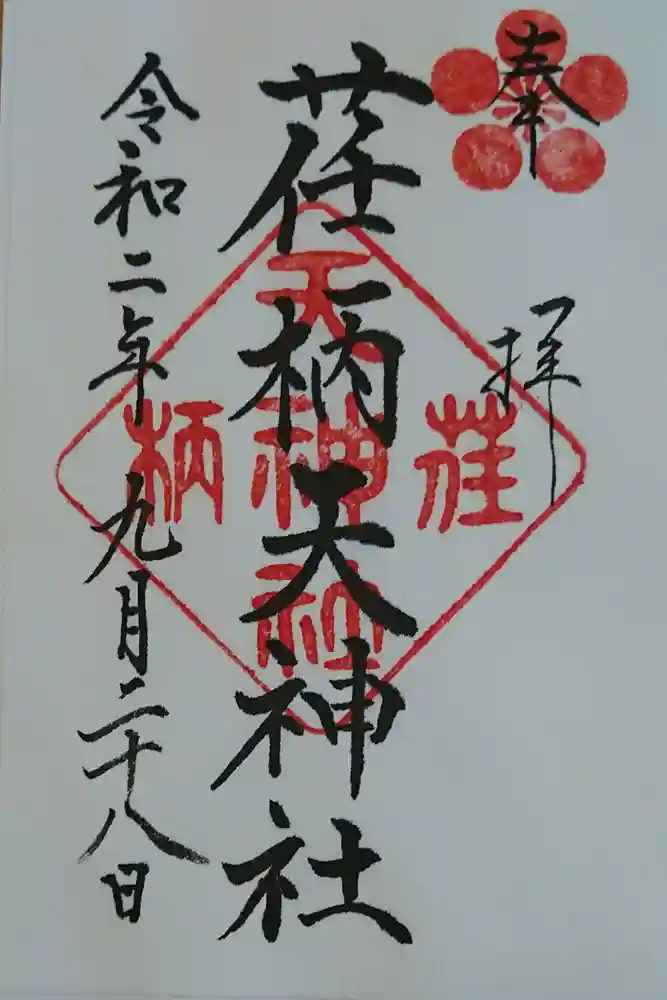 奉拝
荏柄天神社
令和二年九月二十八日
荏柄天神社